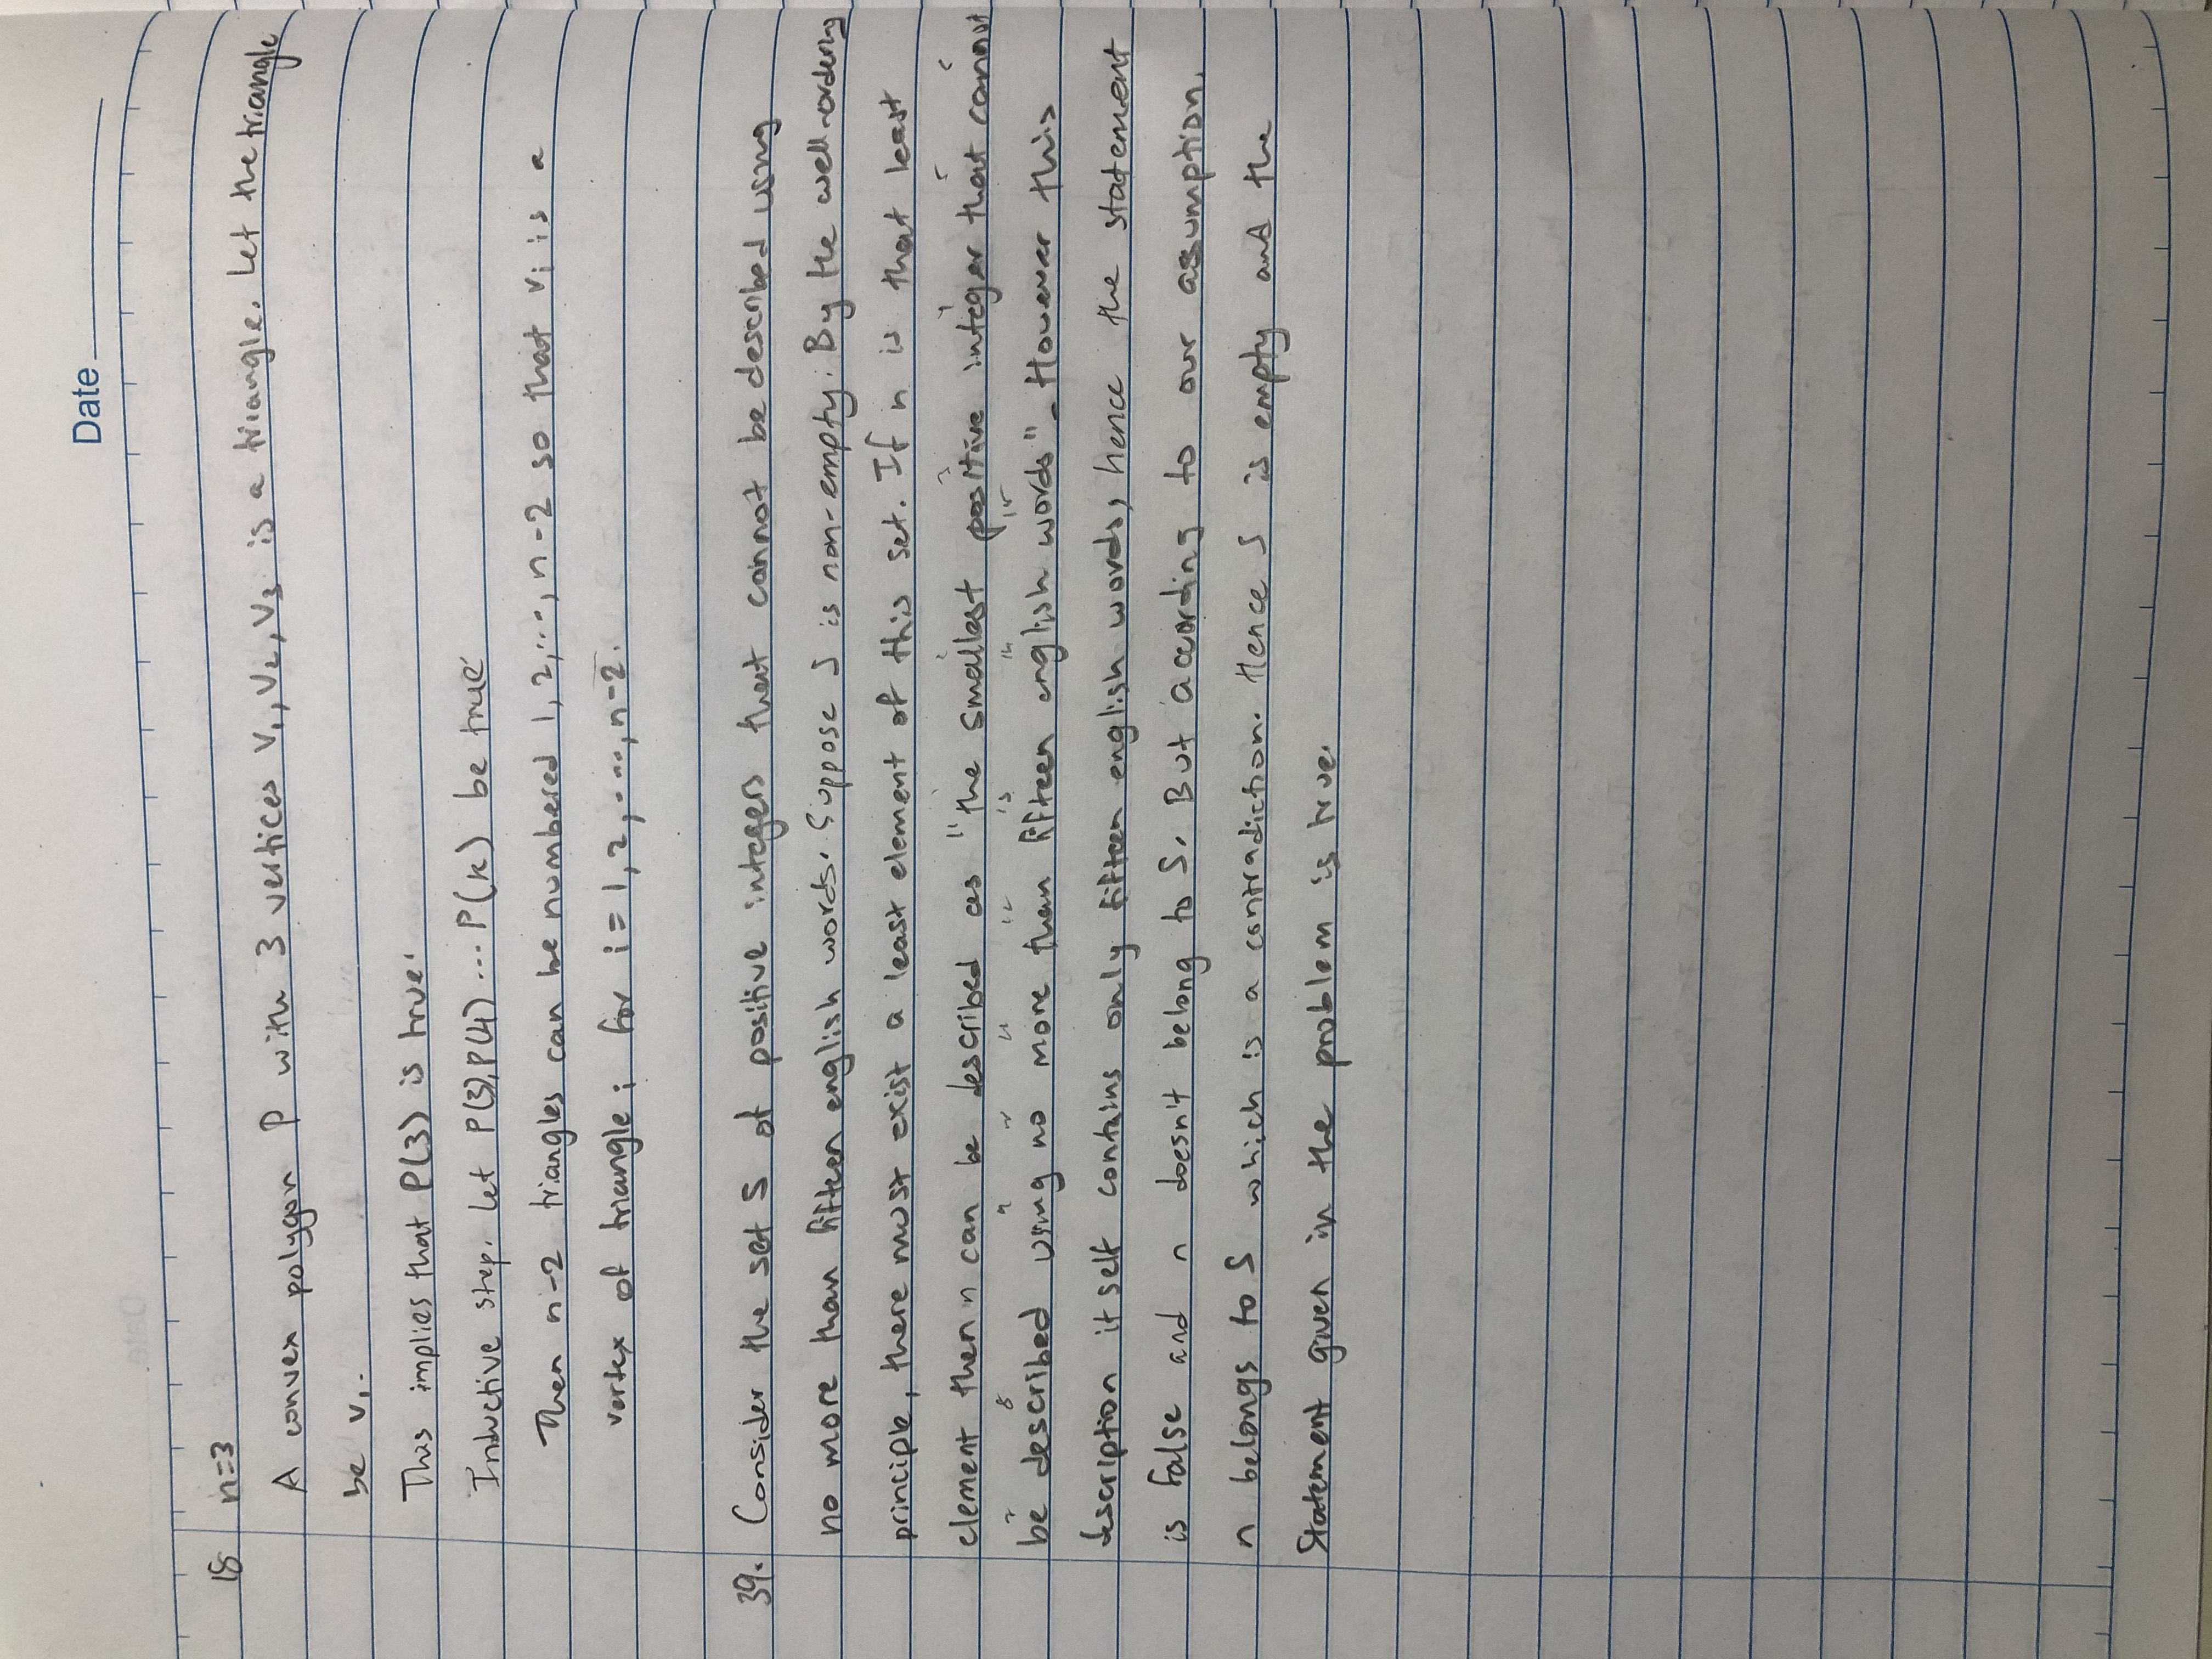 Date
18 n=3
A convex polygon P with 3 vertices V₁, V₂, V₃ is a triangle. Let the triangle
be v₁.
This implies that P(3) is true.
Inductive step. Let P(3), P(4) ... P(k) be true
Then n-2 triangles can be numbered 1, 2, ..., n-2 so that vi is a
vertex of triangle i for i = 1, 2, ...., n-2.
39. Consider the set S of positive integers that cannot be described using
no more than fifteen english words. Suppose S is non-empty. By the well-ordering
principle, there must exist a least element of this set. If n is that least
element then n can be described as "the smallest positive integer that cannot
be described using no more than fifteen english words". However this
description itself contains only fifteen english words, hence the statement
is false and n doesn't belong to S. But according to our assumption,
n belongs to S which is a contradiction. Hence S is empty and the
Statement given in the problem is true.